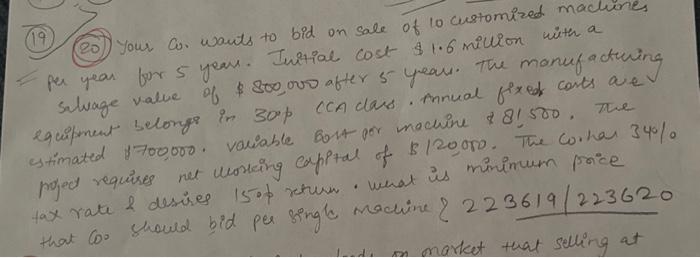 19 20 Your Co. wants to bid on sale of 10 customized machines
per year for 5 years. Initial cost $1.6 million with a
salvage value of $800,000 after 5 years. The manufacturing
equipment belongs in 30% CCA class. Annual fixed costs are
estimated $700,000. variable cost per machine $81,500. The
project requires net working capital of $120,000. The Co. has 34%
tax rate & desires 15% return. what is minimum price
that Co. should bid per single machine? 223619/223620
on market that selling at